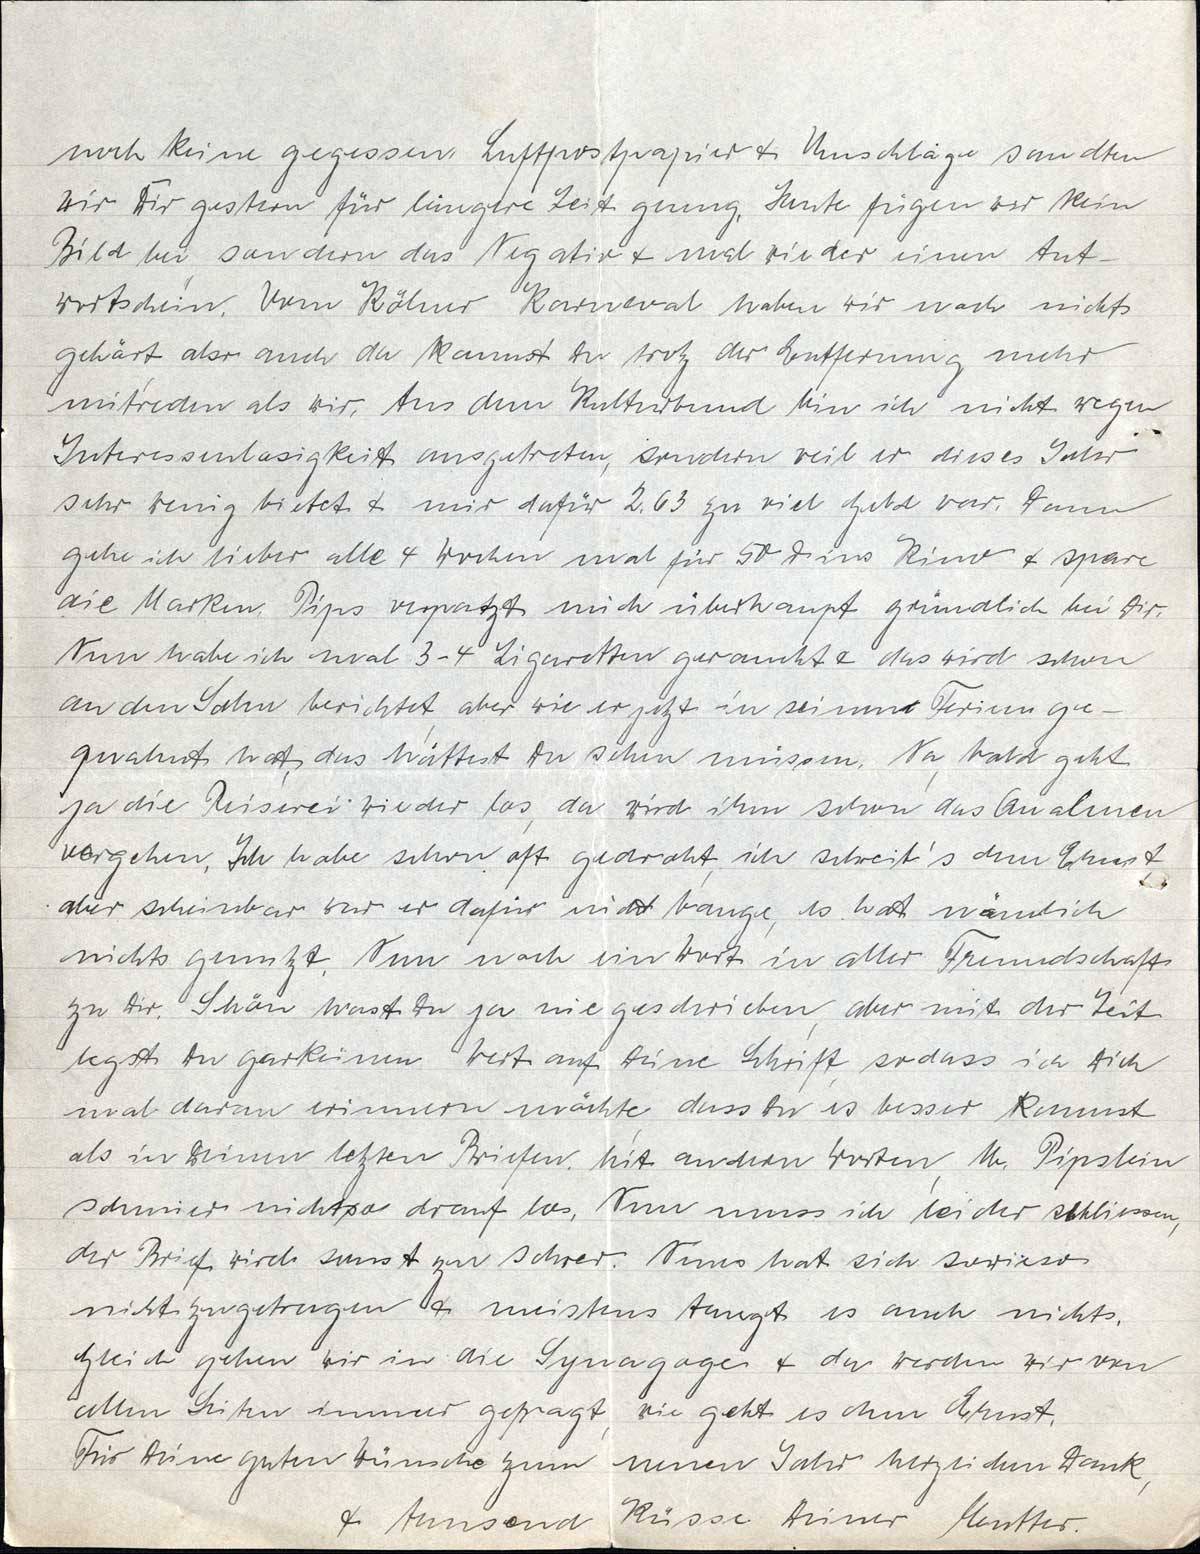 noch keine gegessen. Luftpostpapier & Umschläge sandten
wir Dir gestern für längere Zeit genug. Heute fügen wir kein
Bild bei, sondern das Negativ & mal wieder einen Ant-
wortschein. Vom Kölner Karneval haben wir noch nichts
gehört also auch da kannst Du trotz der Entfernung mehr
mitreden als wir. Aus dem Kulturbund bin ich nicht wegen
Interessenlosigkeit ausgetreten, sondern weil er dieses Jahr
sehr wenig bietet & mir dafür 2.63 zu viel Geld war. Dann
gehe ich lieber alle 4 Wochen mal für 50 ins Kino & spare
die Marken. Pips verpatzt mich überhaupt gründlich bei Dir.
Nun habe ich mal 3-4 Zigaretten geraucht & das wird schon
an den Sohn berichtet, aber wie er jetzt in seinen Ferien ge-
qualmt hat, das hättest Du sehen müssen. Na, bald geht
ja die Reiserei wieder los, da wird ihm schon das Qualmen
vergehen. Ich habe schon oft gedroht, ich schreib's dem Ernst
aber scheinbar war er dafür nicht bange, es hat nämlich
nichts genutzt. Nun noch ein Wort in aller Freundschaft
zu Dir. Schön hast Du ja nie geschrieben, aber mit der Zeit
legst Du garkeinen Wert auf Deine Schrift, sodass ich Dich
mal daran erinnern möchte, dass Du es besser kannst
als in Deinen letzten Briefen. Mit andern Worten, Pipslein
schmier nicht so drauf los. Nun muss ich leider schliessen,
der Brief wird sonst zu schwer. Neues hat sich sowieso
nicht zugetragen & meistens taugt es auch nichts.
Gleich gehen wir in die Synagoge & da werden wir von
allen Seiten immer gefragt, wie geht es dem Ernst.
Für Deine guten Wünsche zum neuen Jahr herzlichen Dank,
& tausend Küsse Deiner Mutter.